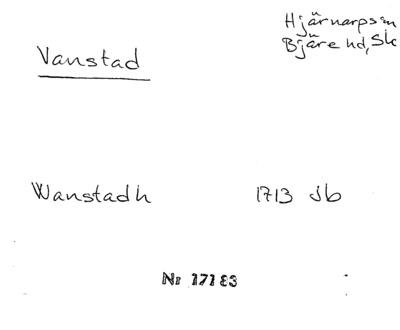 Hjärnarps sn
Bjäre hd, Sk
Vanstad
Wanstadh 1713 Jb
Nr 17183